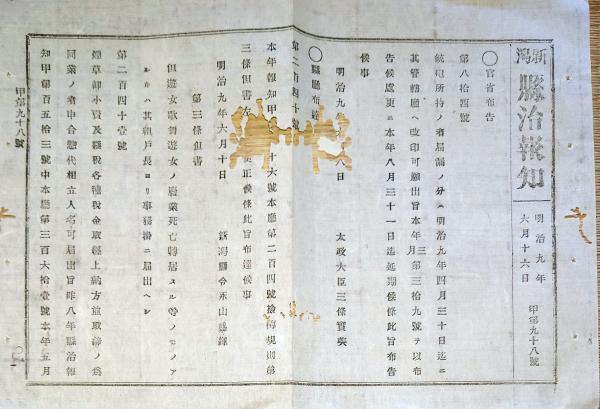 新潟
縣治報知
明治九年
六月十六日
甲第九十八號
◯官省布告
第八拾四號
銃砲所持ノ者届漏ノ分ハ明治九年四月三十日迄ニ
其管轄廳ヘ改印可願出旨本年三月第三拾九號ヲ以布
告候處更ニ本年八月三十一日迄延期候條此旨布告
候事
明治九 八日
太政大臣三條實美
◯縣廳布達
第二百四十號
本年報知甲 十六號本廳第二百四號 規則第
三條但書左 更正候條此旨布達候事
明治九年六月十日
新潟縣令永山盛輝
第三條但書
但遊女歌舞遊女ノ廃業死亡轉居スル等ノモノア
ルカハ其組戸長ヨリ事務掛ニ届出ヘシ
第二百四十壹號
煙草卸小賣及縣税各種税金取纒上納方並取締ノ為
同業ノ者申合惣代相立人名可届出旨昨八年縣治報
知甲第百五拾三號中本廳第三百六拾壹號本年五月
甲第九十八號